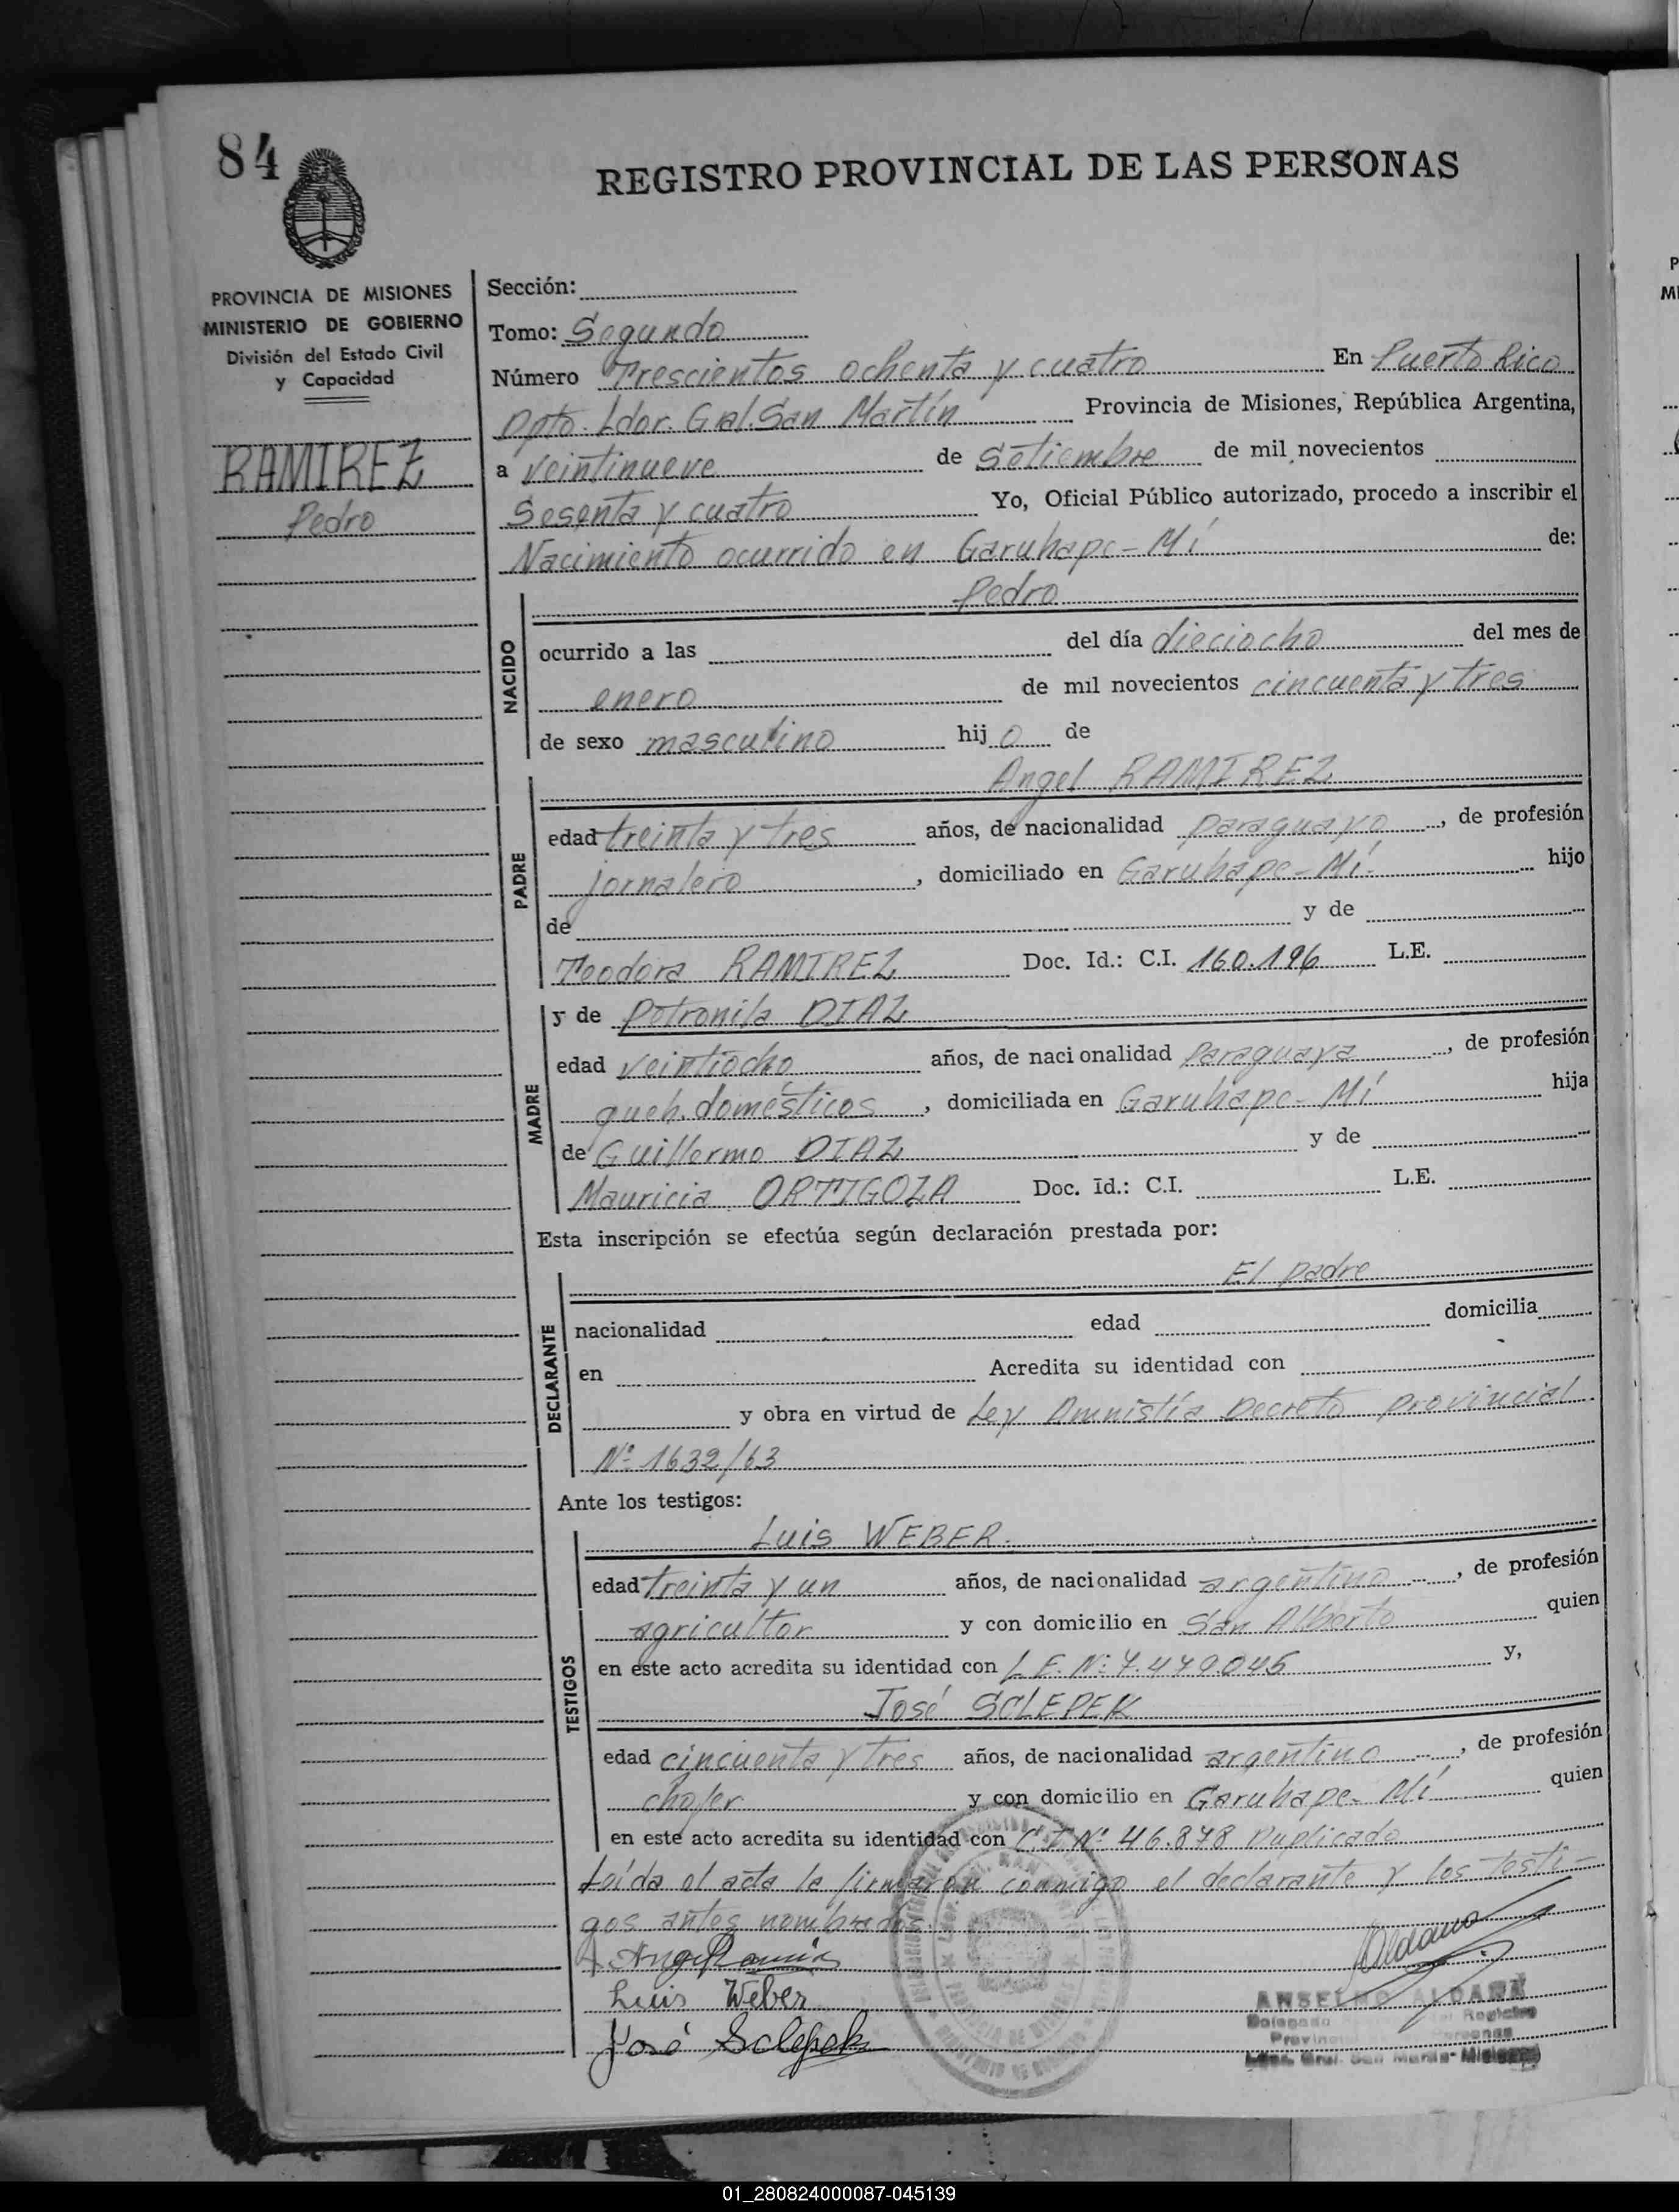 84
REGISTRO PROVINCIAL DE LAS PERSONAS
PROVINCIA DE MISIONES
MINISTERIO DE GOBIERNO
División del Estado Civil
y Capacidad
RAMIREZ
Pedro
Sección:
Tomo: Segundo
Número Trescientos ochenta y cuatro En Puerto Rico
Dpto. Ldor. Gral. San Martín Provincia de Misiones, República Argentina,
a veintinueve de Setiembre de mil novecientos
Sesenta y cuatro Yo, Oficial Público autorizado, procedo a inscribir el
Nacimiento ocurrido en Garuhape-Mí de:
NACIDO
Pedro
ocurrido a las del día dieciocho del mes de
enero de mil novecientos cincuenta y tres
de sexo masculino hijo de
PADRE
Angel RAMIREZ
edad treinta y tres años, de nacionalidad paraguayo, de profesión
jornalero, domiciliado en Garuhape-Mí. hijo
de y de
Teodora RAMIREZ Doc. Id.: C.I. 160.196 L.E.
MADRE
y de Petronila DIAZ
edad veintiocho años, de nacionalidad Paraguaya, de profesión
queh. domésticos, domiciliada en Garuhape-Mí hija
de Guillermo DIAZ y de
Mauricia ORTIGOZA Doc. Id.: C.I. L.E.
Esta inscripción se efectúa según declaración prestada por:
DECLARANTE
El padre
nacionalidad edad domicilia
en Acredita su identidad con
y obra en virtud de Ley Amnistía Decreto Provincial
Nº 1632/63
Ante los testigos:
TESTIGOS
Luis WEBER.
edad treinta y un años, de nacionalidad argentino, de profesión
agricultor y con domicilio en San Alberto quien
en este acto acredita su identidad con L.E. Nº 7.479.045 y,
José SCLEPEK
edad cincuenta y tres años, de nacionalidad argentino, de profesión
chofer y con domicilio en Garuhape-Mí quien
en este acto acredita su identidad con C.I. Nº 46.878 Duplicado
Leída el acta la firmaron conmigo el declarante y los testi-
gos antes nombrados.
Luis Weber
José Sclepek
Aldana
ANSELMO ALDANA
Delegado Registro
Provincial Personas
Ldor. Gral. San Martín-Misiones
01_280824000087-045139